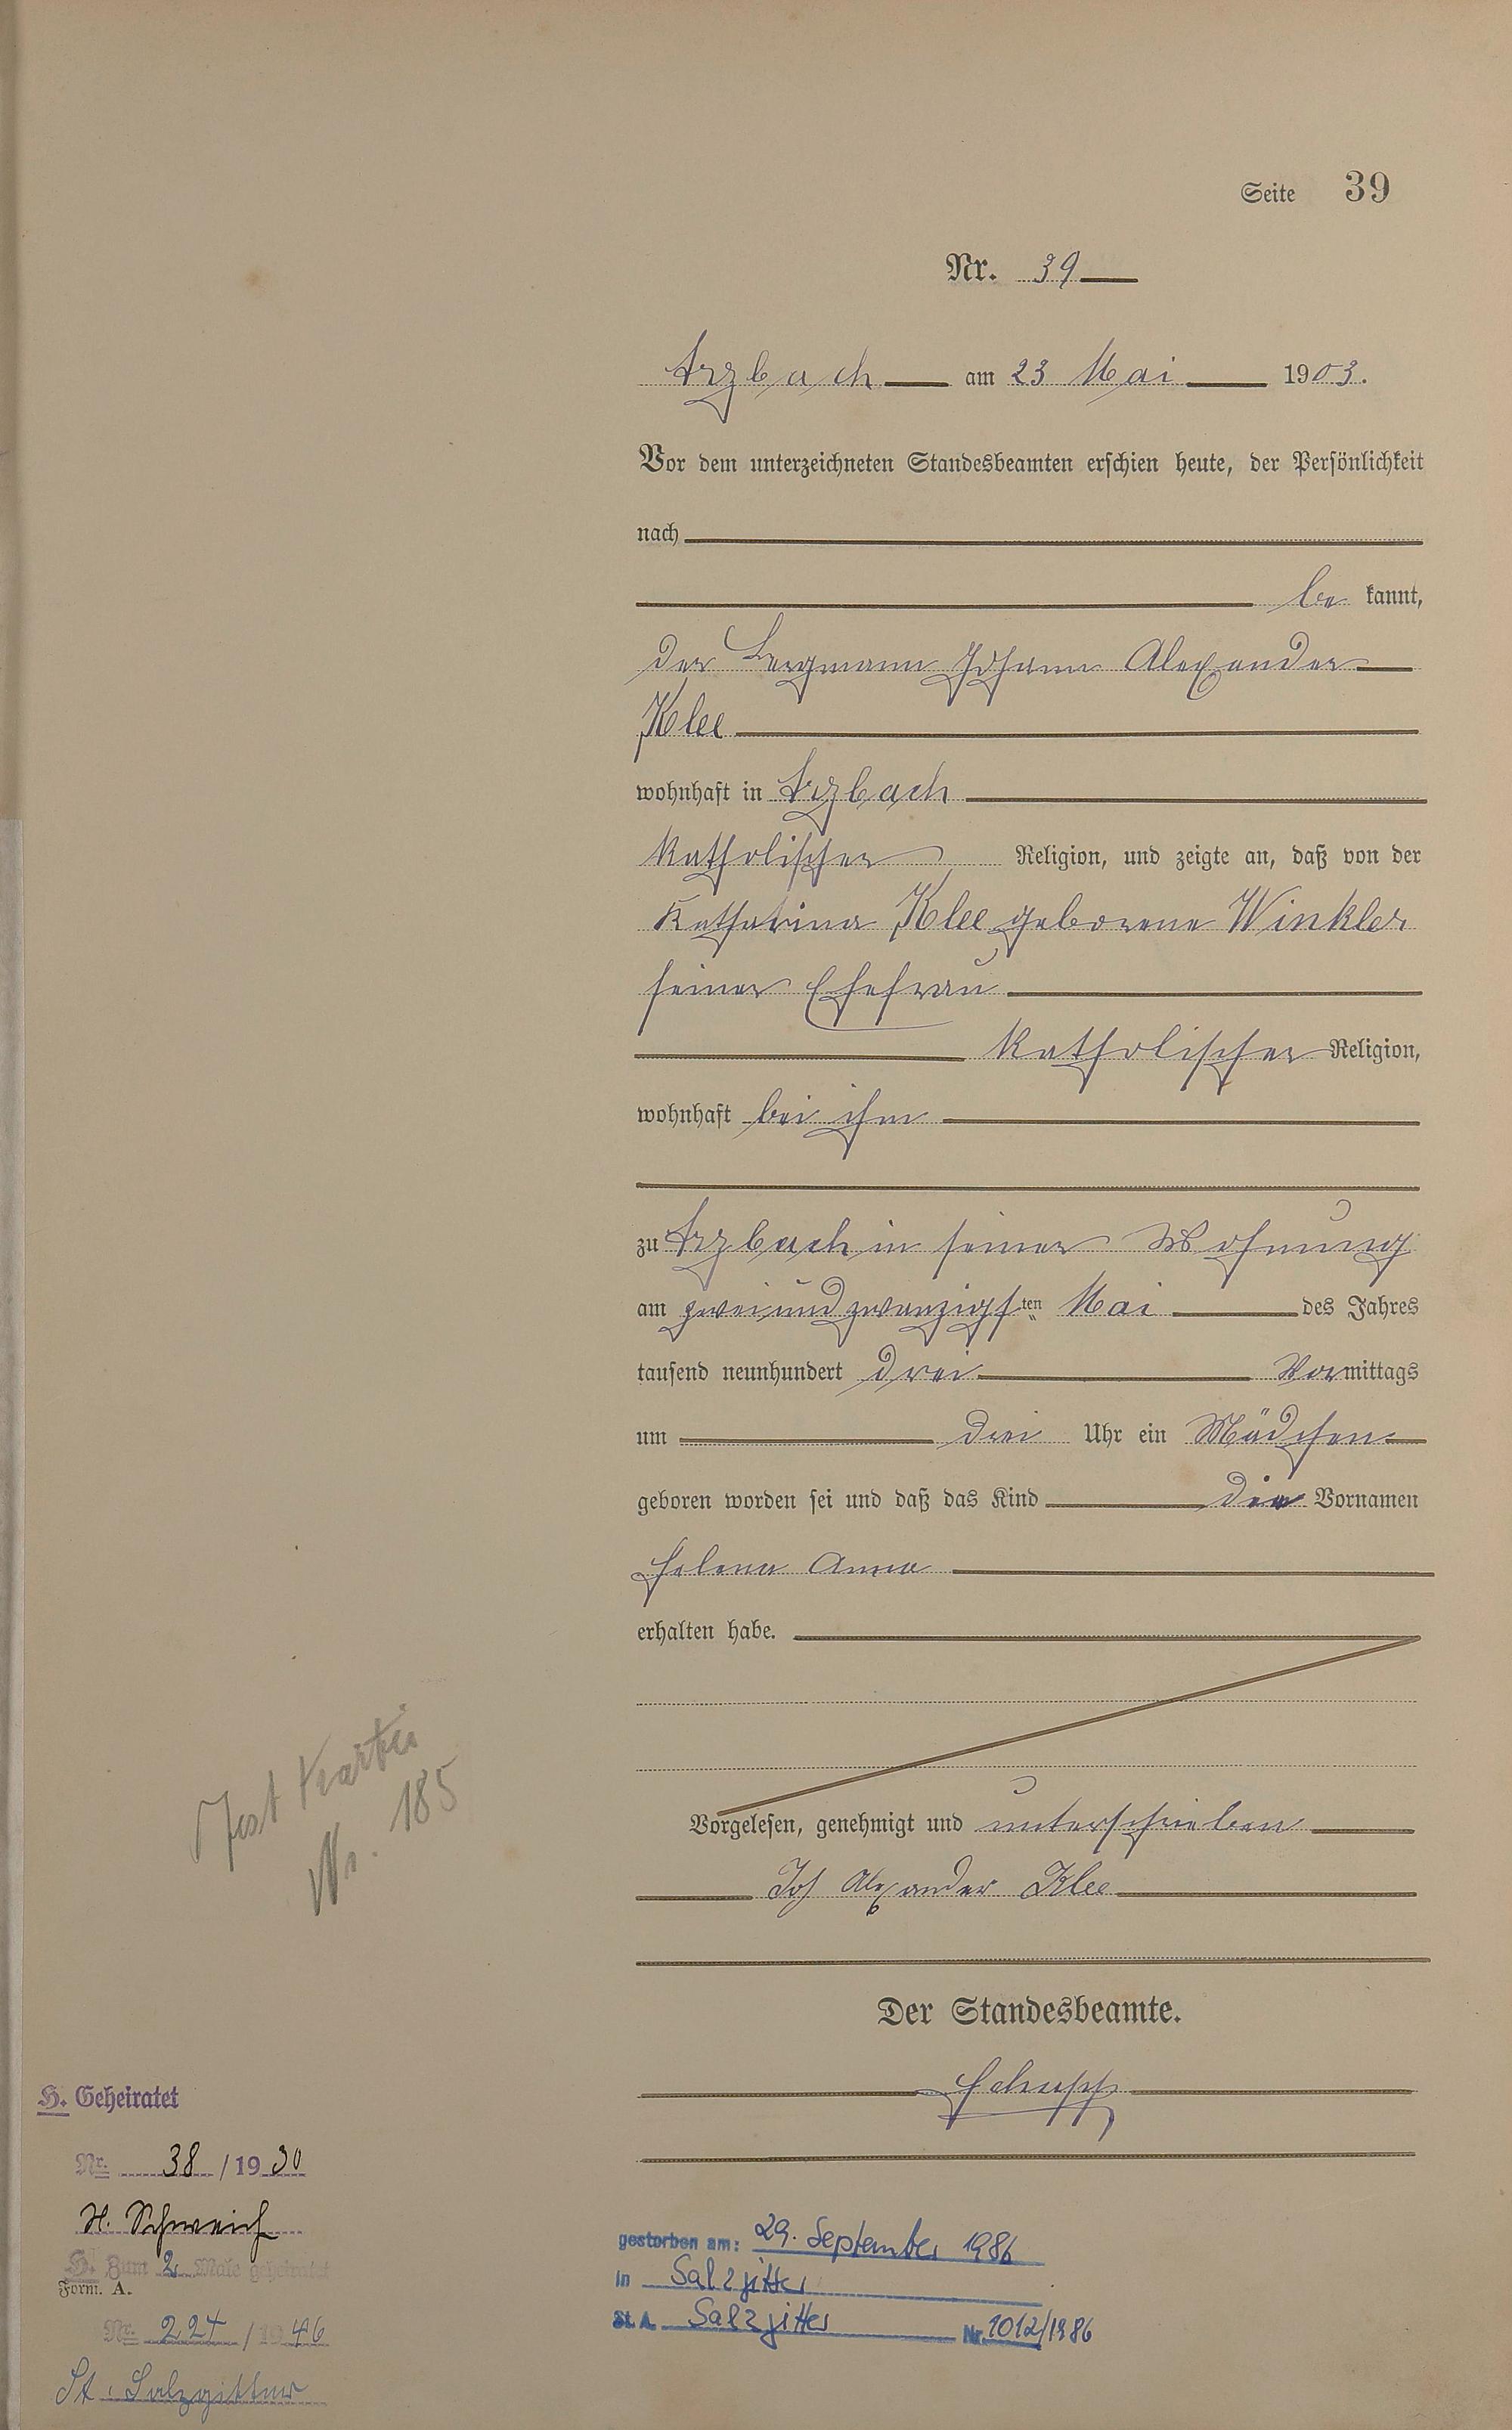 Seite 39
Nr. 39
Arzbach am 23 Mai 1903.
Vor dem unterzeichneten Standesbeamten erschien heute, der Persönlichkeit
nach
be kannt,
der Bergmann Johann Alexander
Klee
wohnhaft in Arzbach
katholischer Religion, und zeigte an, daß von der
Katharina Klee geborene Winkler
seiner Ehefrau
katholischer Religion,
wohnhaft bei ihm
zu Arzbach in seiner Wohnung
am zweiundzwanzigsten Mai des Jahres
tausend neunhundert drei Vormittags
um drei Uhr ein Mädchen
geboren worden sei und daß das Kind die Vornamen
Helena Anna
erhalten habe.
Kartei
Nr. 185
Vorgelesen, genehmigt und unterschrieben
Joh Alexander Klee
Der Standesbeamte.
Schupp
H. Geheiratet
Nr. 38/1930
H. Schweich
H. Zum 2. Male geheiratet
Form. A.
Nr. 224/1946
St. Salzgitter
gestorben am: 29. September 1986
in Salzgitter
St. A. Salzgitter Nr. 1012/1986